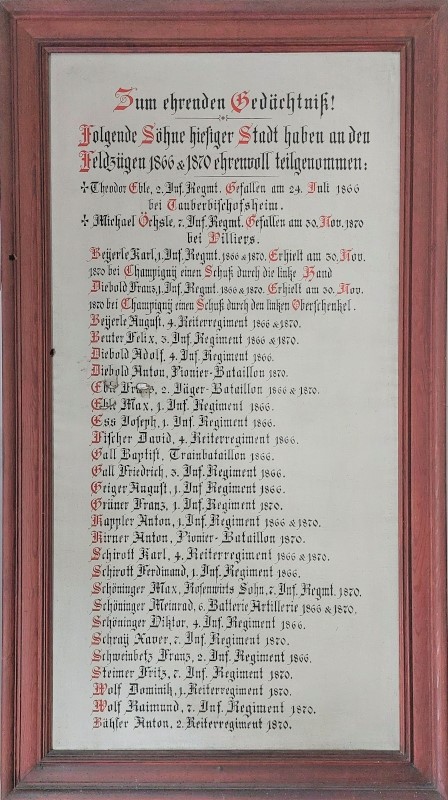 Zum ehrenden Gedächtniß!
Folgende Söhne hiesiger Stadt haben an den
Feldzügen 1866 & 1870 ehrenvoll teilgenommen:
✝Theodor Eble, 2. Inf. Regmt. Gefallen am 24. Juli 1866
bei Tauberbischofsheim.
✝ Michael Öchsle, 7. Inf. Regmt. Gefallen am 30. Nov. 1870
bei Villiers.
Beyerle Karl, 1. Inf. Regmt. 1866 & 1870. Erhielt am 30. Nov.
1870 bei Champignÿ einen Schuß durch die linke Hand
Diebold Franz, 1. Inf. Regmt. 1866 & 1870. Erhielt am 30. Nov.
1870 bei Champignÿ einen Schuß durch den linken Oberschenkel.
Beyerle August, 4. Reiterregiment 1866 & 1870.
Beuter Felix, 3. Inf. Regiment 1866 & 1870.
Diebold Adolf, 4. Inf. Regiment 1866.
Diebold Anton, Pionier-Bataillon 1870.
Eble 2. Jäger-Bataillon 1866 & 1870.
Eble Max, 1. Inf. Regiment 1866.
Ess Joseph, 1. Inf. Regiment 1866.
Fischer David, 4. Reiterregiment 1866.
Gall Baptist, Trainbataillon 1866.
Gall Friedrich, 3. Inf. Regiment 1866.
Geiger August, 1. Inf. Regiment 1866.
Grüner Franz, 1. Inf. Regiment 1870.
Kappler Anton, 1. Inf. Regiment 1866 & 1870.
Kirner Anton, Pionier-Bataillon 1870.
Schirott Karl, 4. Reiterregiment 1866 & 1870.
Schirott Ferdinand, 1. Inf. Regiment 1866.
Schöninger Max, Rosenwirts Sohn, 7. Inf. Regmt. 1870.
Schöninger Meinrad, 6. Batterie Artillerie 1866 & 1870.
Schöninger Viktor, 4. Inf. Regiment 1866.
Schraÿ Xaver, 7. Inf. Regiment 1870.
Schweinbetz Franz, 2. Inf. Regiment 1866.
Steimer Fritz, 7. Inf. Regiment 1870.
Wolf Dominik, 1. Reiterregiment 1870.
Wolf Raimund, 7. Inf. Regiment 1870.
Anton, 2. Reiterregiment 1870.